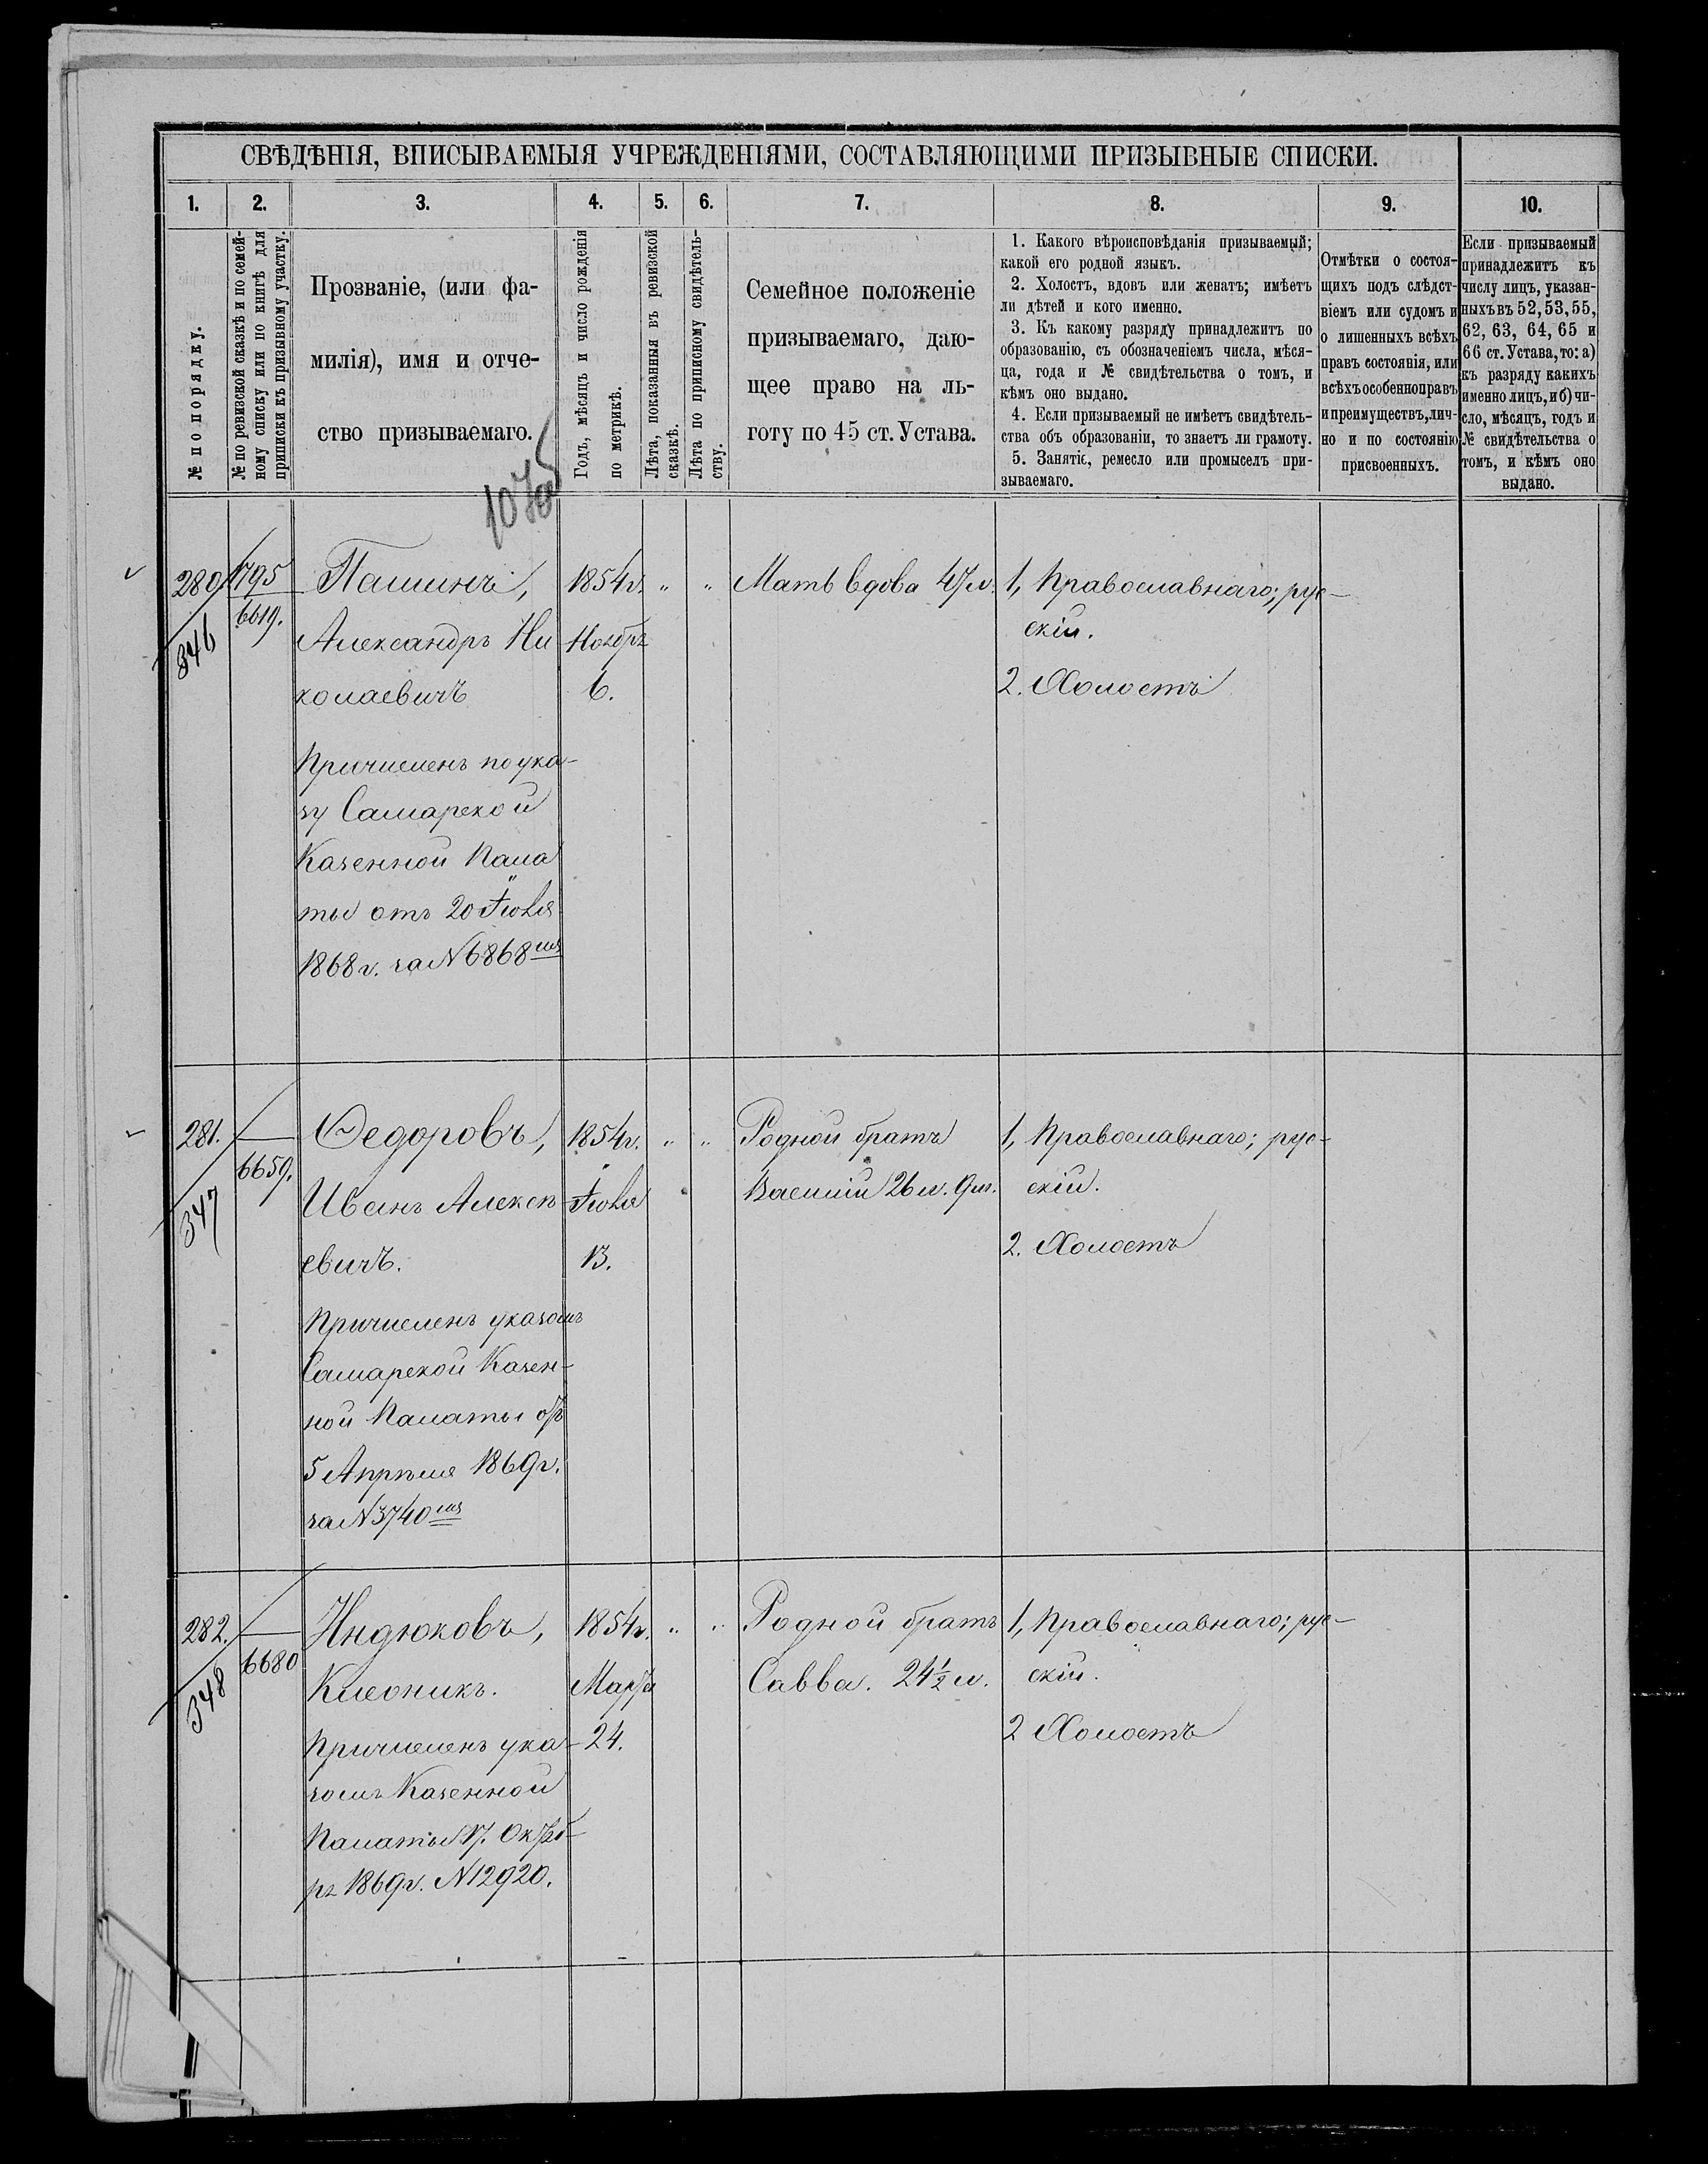 СВѢДѢНІЯ, ВПИСЫВАЕМЫЯ УЧРЕЖДЕНІЯМИ, СОСТАВЛЯЮЩИМИ ПРИЗЫВНЫЕ СПИСКИ.
1.
2.
3.
4.
5.
6.
7.
8.
9.
10.
№ по порядку.
№ по ревизской сказкѣ и по семей-
ному списку или по книгѣ для
приписки къ призывному участку.
Прозваніе, (или фа-
милія), имя и отче-
ство призываемаго.
Годъ, мѣсяцъ и число рожденія
по метрикѣ.
Лѣта, показанныя въ ревизской
сказкѣ.
Лѣта по приписному свидѣтель-
ству.
Семейное положеніе
призываемаго, даю-
щее право на ль-
готу по 45 ст. Устава.
1. Какого вѣроисповѣданія призываемый;
какой его родной языкъ.
2. Холостъ, вдовъ или женатъ; имѣетъ
ли дѣтей и кого именно.
3. Къ какому разряду принадлежитъ по
образованію, съ обозначеніемъ числа, мѣся-
ца, года и № свидѣтельства о томъ, и
кѣмъ оно выдано.
4. Если призываемый не имѣетъ свидѣтель-
ства объ образованіи, то знаетъ ли грамоту.
5. Занятіе, ремесло или промыселъ при-
зываемаго.
Отмѣтки о состоя-
щихъ подъ слѣдст-
віемъ или судомъ и
о лишенныхъ всѣхъ
правъ состоянія, или
всѣхъ особенно правъ
и преимуществъ, лич-
но и по состоянію
присвоенныхъ.
Если призываемый
принадлежитъ къ
числу лицъ, указан-
ныхъ въ 52, 53, 55,
62, 63, 64, 65 и
66 ст. Устава, то: а)
къ разряду какихъ
именно лицъ, и б) чи-
сло, мѣсяцъ, годъ и
№ свидѣтельства о
томъ, и кѣмъ оно
выдано.
280.
346
1795
6619.
Пашинъ,
Александръ Ни
колаевичъ
Причисленъ по ука-
зу Самарской
Казенной Пала
ты отъ 20 Іюля
1868 г. за № 6868 мъ
1854 г.
Ноябр.
6.
" "
Мать вдова 47 л.
1, Православнаго; рус-
скій.
2. Холостъ
281.
347
6659.
Федоровъ,
Иванъ Алексѣ
евичъ.
Причисленъ указомъ
Самарской Казен-
ной Палаты отъ
5 Апрѣля 1869 г.
за № 3740 мъ
1854 г.
Іюля
13.
" "
Родной братъ
Василій 26 л. 9 м.
1, Православнаго; рус-
скій.
2. Холостъ
282.
348
6680
Индюковъ,
Клеоникъ.
Причисленъ ука-
зомъ Казенной
Палаты 17. Октяб-
ря 1869 г. № 12920.
1854 г.
Марта
24.
" "
Родной братъ
Савва. 24 1/2 л.
1, Православнаго; рус-
скій.
2 Холостъ